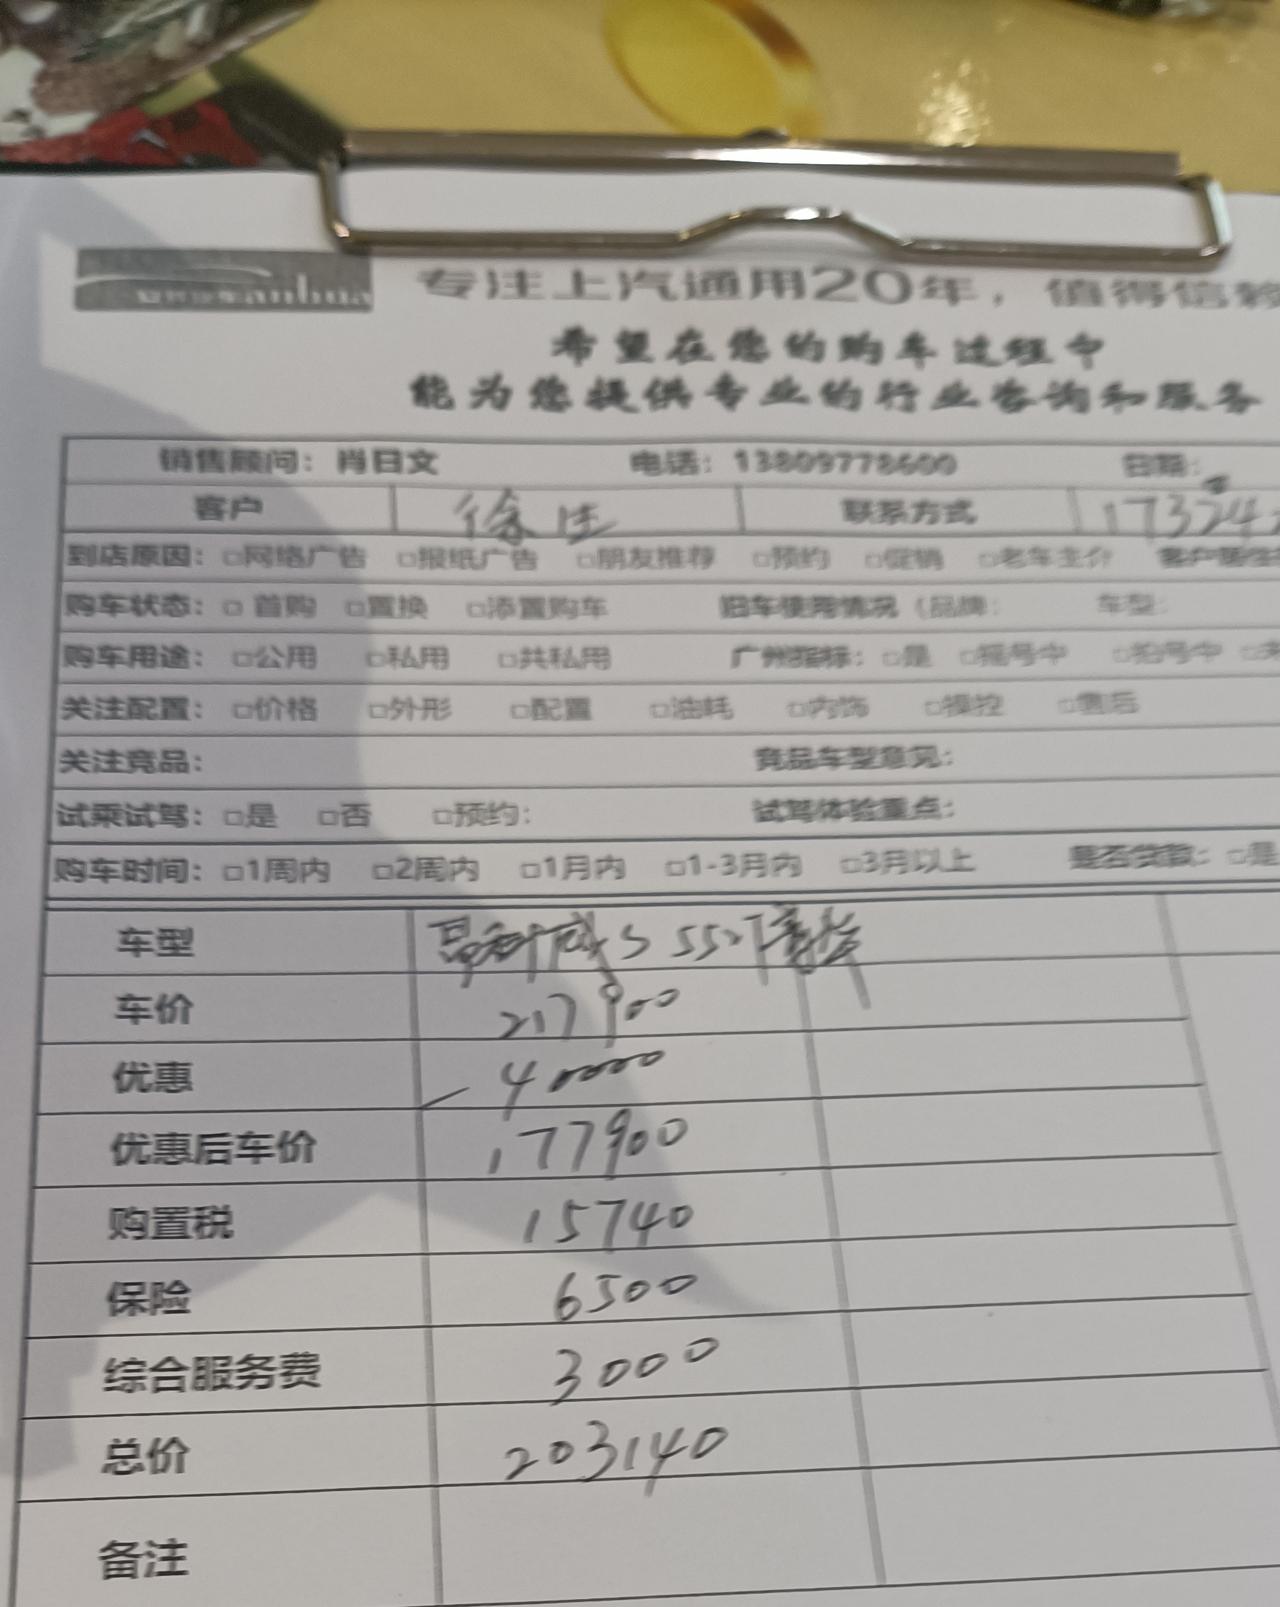 专注上汽通用20年，值得信赖
希望在您的购车过程中
能为您提供专业的行业咨询和服务
销售顾问：肖日文 电话：13809778600 日期：
客户 徐生 联系方式 17324
到店原因：□网络广告 □报纸广告 □朋友推荐 □预约 □促销 □老车主介
购车状态：□ 首购 □置换 □添置购车 旧车使用情况（品牌： 车型：
购车用途：□公用 □私用 □共私用 广州指标：□是 □摇号中 □拍号中
关注配置：□价格 □外形 □配置 □油耗 □内饰 □操控 □售后
关注竞品： 竞品车型意见：
试乘试驾：□是 □否 □预约： 试驾体验重点：
购车时间：□1周内 □2周内 □1月内 □1-3月内 □3月以上 是否贷款：□是
车型 昂科威S 552T豪华
车价 217900
优惠 -40000
优惠后车价 177900
购置税 15740
保险 6500
综合服务费 3000
总价 203140
备注